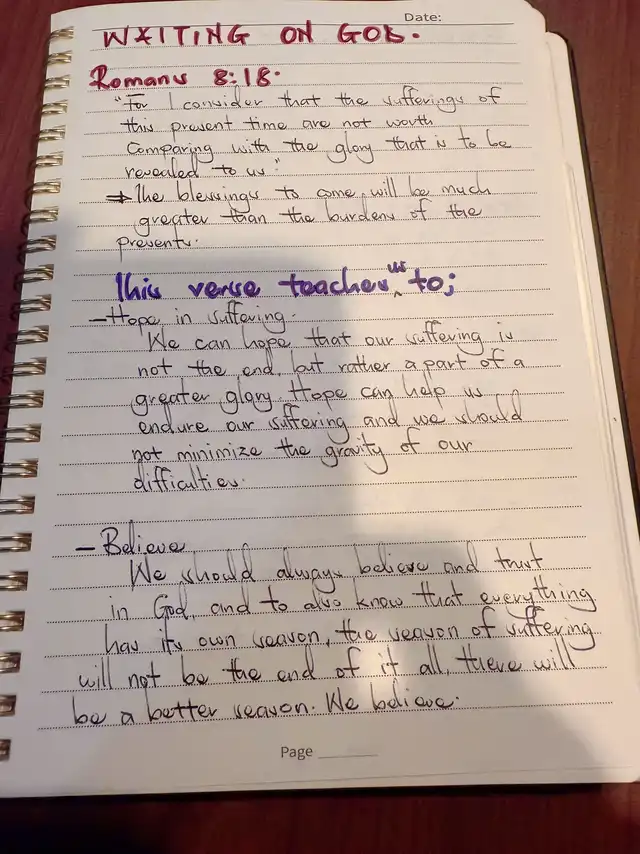 Date:
WAITING ON GOD.
Romans 8:18.
"For I consider that the sufferings of
this present time are not worth
Comparing with the glory that is to be
revealed to us."
→ The blessings to come, will be much
greater than the burdens of the
presents.
This verse teaches us to;
- Hope in suffering.
We can hope that our suffering is
not the end, but rather a part of a
greater glory. Hope can help us
endure our suffering and we should
not minimize the gravity of our
difficulties.
- Believe.
We should always believe and trust
in God, and to also know that everything
has its own season, the season of suffering
will not be the end of it all, there will
be a better season. We believe.
Page